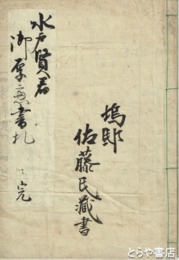 水戸賢君
御原意書札 完
塢邸
佐藤民蔵書
とらや書店